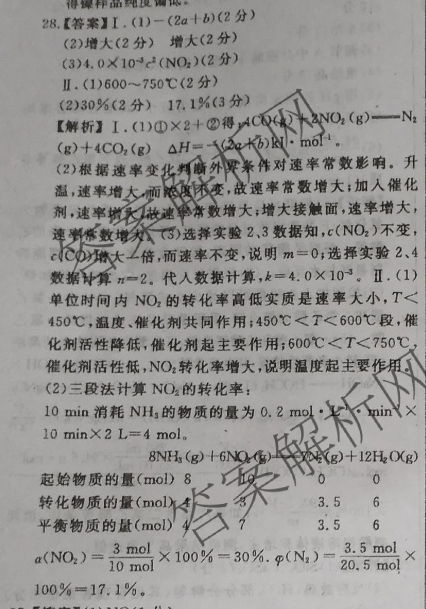 得镍样品纯度偏低。
28.【答案】Ⅰ.(1)-(2a+b)(2分)
(2)增大(2分) 增大(2分)
(3)4.0×10⁻³c²(NO₂)(2分)
Ⅱ.(1)600~750℃(2分)
(2)30%(2分) 17.1%(3分)
【解析】Ⅰ.(1)①×2+②得:4CO(g)+2NO₂(g)══N₂
(g)+4CO₂(g) ΔH=-(2a+b)kJ·mol⁻¹。
(2)根据速率变化判断外界条件对速率常数影响。升
温,速率增大,而浓度不变,故速率常数增大;加入催化
剂,速率增大,故速率常数增大;增大接触面,速率增大,
速率常数增大。(3)选择实验2、3数据知,c(NO₂)不变,
c(CO)增大一倍,而速率不变,说明m=0;选择实验2、4
数据计算n=2。代入数据计算,k=4.0×10⁻³。Ⅱ.(1)
单位时间内NO₂的转化率高低实质是速率大小,T<
450℃,温度、催化剂共同作用;450℃<T<600℃段,催
化剂活性降低,催化剂起主要作用;600℃<T<750℃,
催化剂活性低,NO₂转化率增大,说明温度起主要作用。
(2)三段法计算NO₂的转化率:
10 min消耗NH₃的物质的量为0.2 mol·L⁻¹·min⁻¹×
10 min×2 L=4 mol。
8NH₃(g)+6NO₂(g)══7N₂(g)+12H₂O(g)
起始物质的量(mol) 8 10 0 0
转化物质的量(mol) 4 3 3.5 6
平衡物质的量(mol) 4 7 3.5 6
α(NO₂)=3 mol/10 mol×100%=30%。φ(N₂)=3.5 mol/20.5 mol×
100%=17.1%。
答案解析网
答案解析网